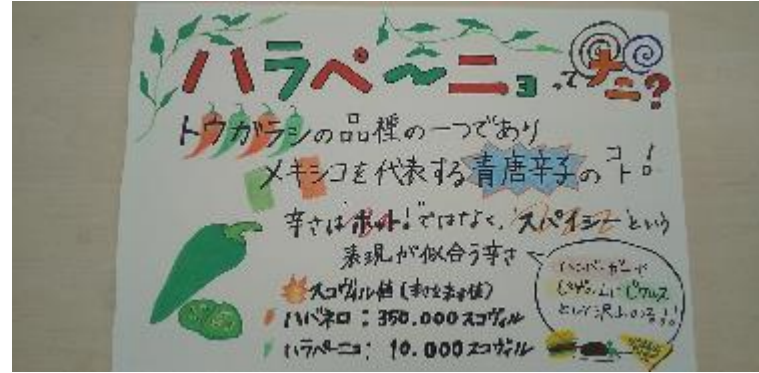 ハラペ〜ニョってナニ?
トウガラシの品種の一つであり
メキシコを代表する青唐辛子のコト!
辛さは"ホット!"ではなく、"スパイシー"という
表現が似合う辛さ
スコヴィル値(辛さを表す値)
ハバネロ:350.000スコヴィル
ハラペーニョ:10.000スコヴィル
ハンバーガーや
ピクルス
として沢山のる!!